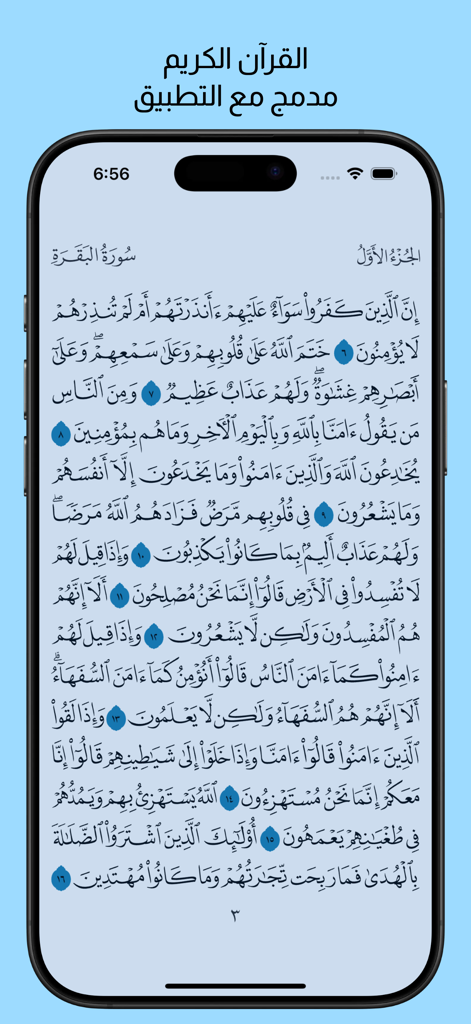 القرآن الكريم
مدمج مع التطبيق
6:56
الجُزْءُ الأَوَّلُ
سُورَةُ البَقَرَةِ
إِنَّ ٱلَّذِينَ كَفَرُوا۟ سَوَآءٌ عَلَيْهِمْ ءَأَنذَرْتَهُمْ أَمْ لَمْ تُنذِرْهُمْ
لَا يُؤْمِنُونَ ٦ خَتَمَ ٱللَّهُ عَلَىٰ قُلُوبِهِمْ وَعَلَىٰ سَمْعِهِمْ ۖ وَعَلَىٰٓ
أَبْصَٰرِهِمْ غِشَٰوَةٌ ۖ وَلَهُمْ عَذَابٌ عَظِيمٌ ٧ وَمِنَ ٱلنَّاسِ
مَن يَقُولُ ءَامَنَّا بِٱللَّهِ وَبِٱلْيَوْمِ ٱلْءَاخِرِ وَمَا هُم بِمُؤْمِنِينَ ٨
يُخَٰدِعُونَ ٱللَّهَ وَٱلَّذِينَ ءَامَنُوا۟ وَمَا يَخْدَعُونَ إِلَّآ أَنفُسَهُمْ
وَمَا يَشْعُرُونَ ٩ فِى قُلُوبِهِم مَّرَضٌ فَزَادَهُمُ ٱللَّهُ مَرَضًا ۖ
وَلَهُمْ عَذَابٌ أَلِيمٌۢ بِمَا كَانُوا۟ يَكْذِبُونَ ١٠ وَإِذَا قِيلَ لَهُمْ
لَا تُفْسِدُوا۟ فِى ٱلْأَرْضِ قَالُوٓا۟ إِنَّمَا نَحْنُ مُصْلِحُونَ ١١ أَلَآ إِنَّهُمْ
هُمُ ٱلْمُفْسِدُونَ وَلَٰكِن لَّا يَشْعُرُونَ ١٢ وَإِذَا قِيلَ لَهُمْ
ءَامِنُوا۟ كَمَآ ءَامَنَ ٱلنَّاسُ قَالُوٓا۟ أَنُؤْمِنُ كَمَآ ءَامَنَ ٱلسُّفَهَآءُ ۗ
أَلَآ إِنَّهُمْ هُمُ ٱلسُّفَهَآءُ وَلَٰكِن لَّا يَعْلَمُونَ ١٣ وَإِذَا لَقُوا۟
ٱلَّذِينَ ءَامَنُوا۟ قَالُوٓا۟ ءَامَنَّا وَإِذَا خَلَوْا۟ إِلَىٰ شَيَٰطِينِهِمْ قَالُوٓا۟ إِنَّا
مَعَكُمْ إِنَّمَا نَحْنُ مُسْتَهْزِءُونَ ١٤ ٱللَّهُ يَسْتَهْزِئُ بِهِمْ وَيَمُدُّهُمْ
فِى طُغْيَٰنِهِمْ يَعْمَهُونَ ١٥ أُو۟لَٰٓئِكَ ٱلَّذِينَ ٱشْتَرَوُا۟ ٱلضَّلَٰلَةَ
بِٱلْهُدَىٰ فَمَا رَبِحَت تِّجَٰرَتُهُمْ وَمَا كَانُوا۟ مُهْتَدِينَ ١٦
٣